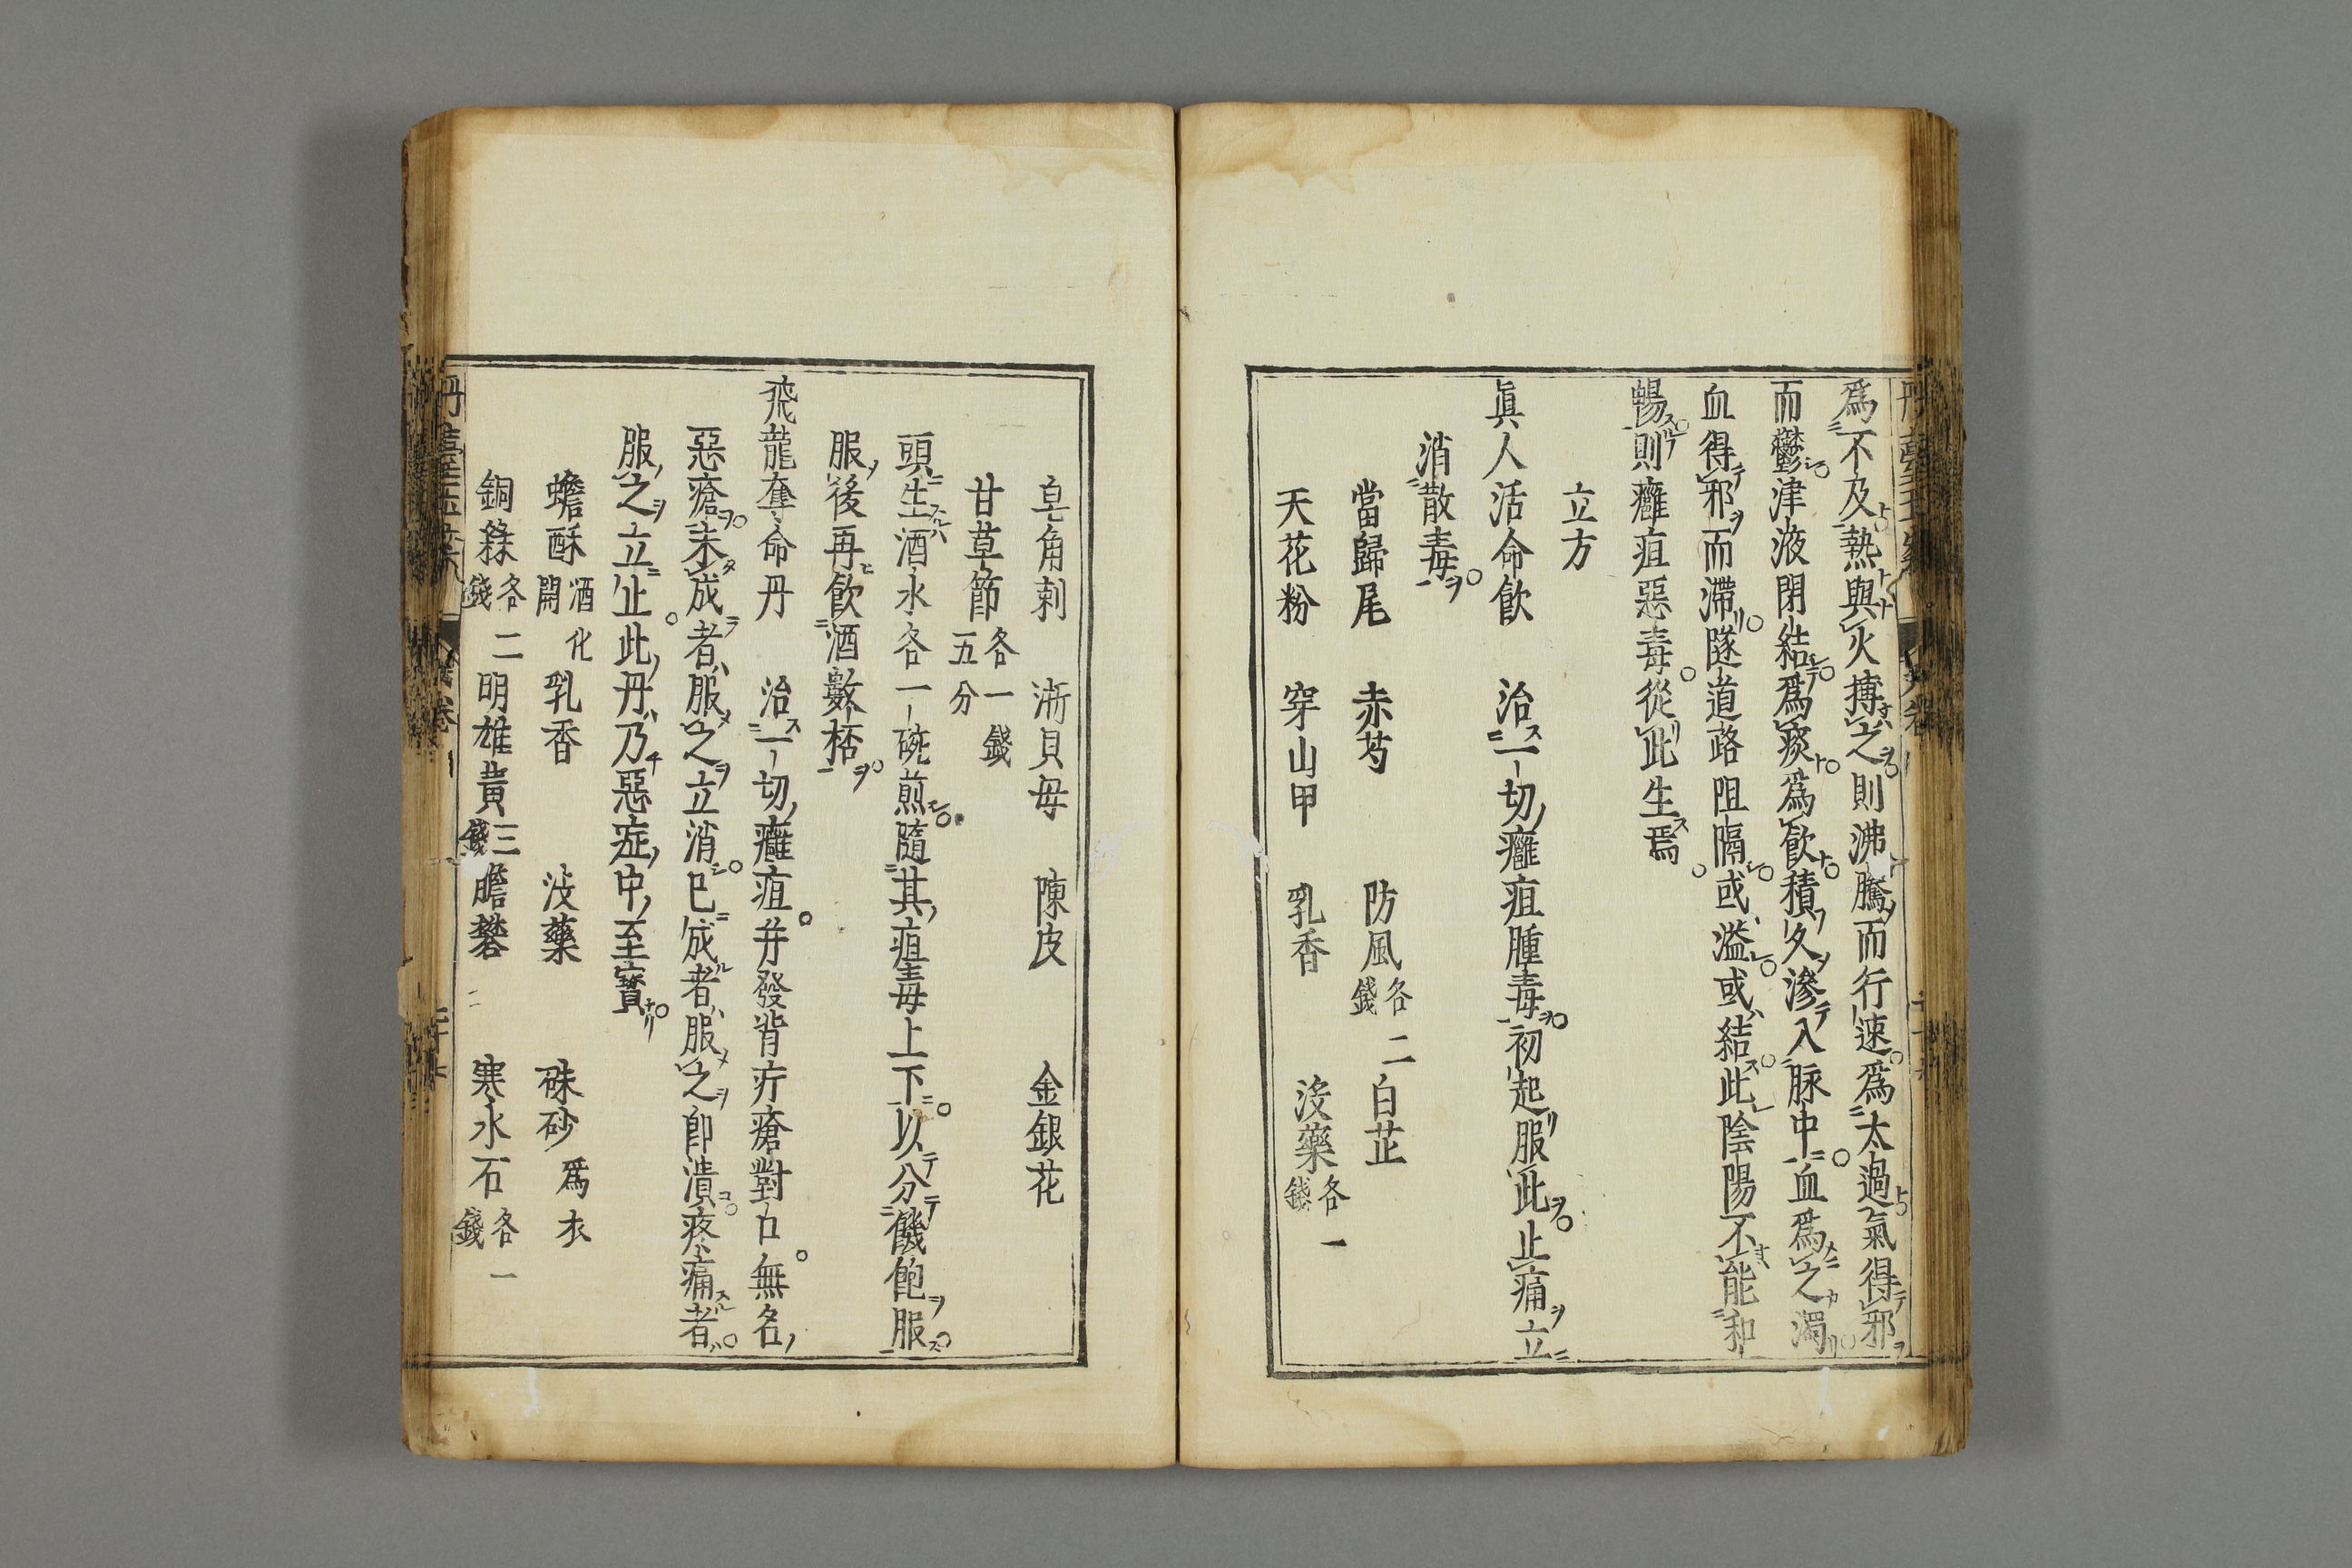 爲不及熱與火搏之則沸騰而行速爲太過氣得邪
而鬱津液閉結爲痰爲飮積久滲入脉中血爲之濁
血得邪而滯隧道路阻隔或溢或結此陰陽不能和
暢則癰疽惡毒從此生焉
立方
眞人活命飮 治一切癰疽腫毒初起服此止痛立
消散毒
當歸尾 赤芍 防風各二錢 白芷
天花粉 穿山甲 乳香 沒藥各一錢
皂角刺 浙貝母 陳皮 金銀花
甘草節各一錢五分
頭生酒水各一碗煎隨其疽毒上下以分饑飽服
服後再飮酒數桮
飛龍奪命丹 治一切癰疽并發背疔瘡對口無名
惡瘡未成者服之立消已成者服之卽潰疼痛者
服之立止此丹乃惡症中至寳
蟾酥酒化開 乳香 沒藥 硃砂爲衣
銅綠各二錢 明雄黃三錢 膽礬 寒水石各一錢